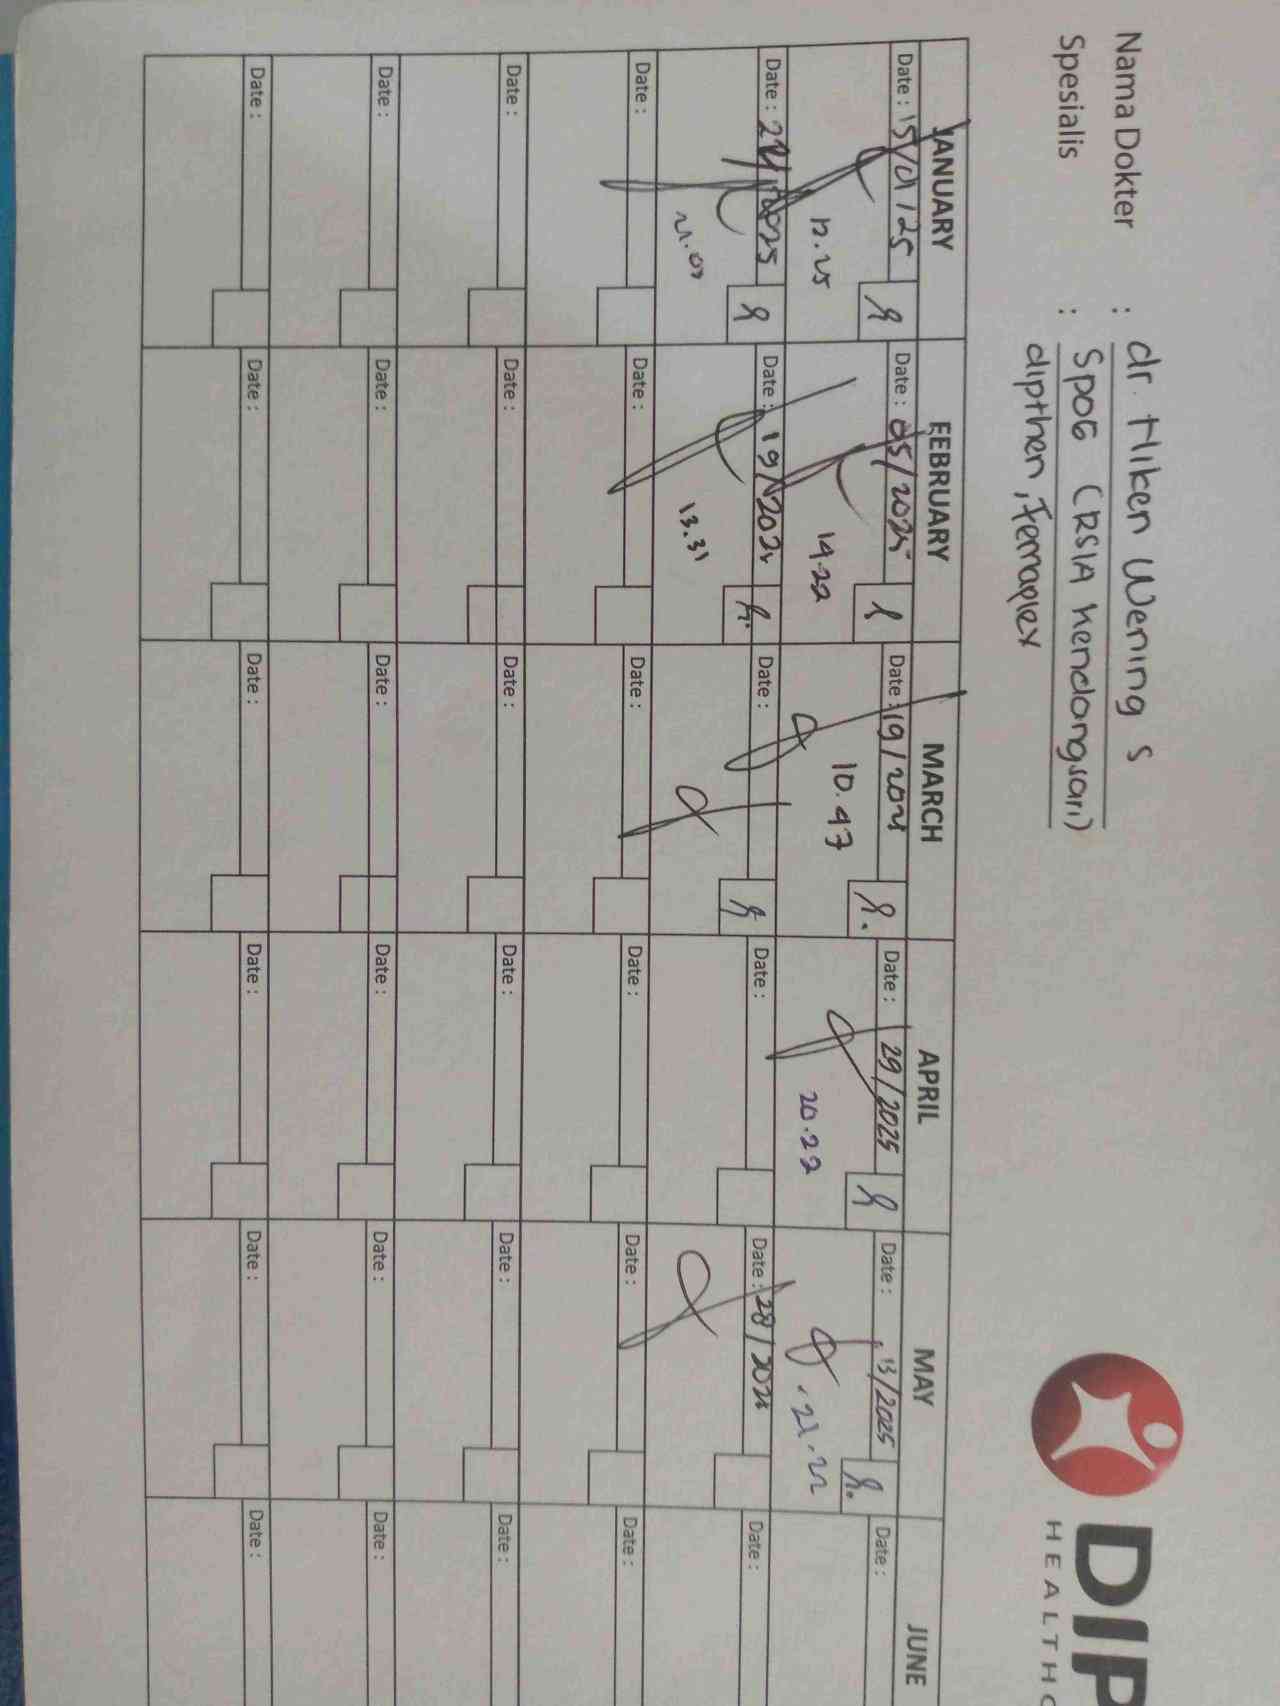 Nama Dokter : dr. Hiken Wening S
Spesialis : SpOG (RSIA Kendangsari)
dipthen, Femaplex
DIP
HEALTHC
JANUARY FEBRUARY MARCH APRIL MAY JUNE
Date : 15/01/25 Date : 05/2025 Date : 19/2025 Date : 29/2025 Date : 13/2025 Date :
12.25 14.22 10.47 20.22 21.22
Date : 22/1/2025 Date : 19/2025 Date : Date : Date : 28/2025 Date :
21.00 13.31
Date : Date : Date : Date : Date : Date :
Date : Date : Date : Date : Date : Date :
Date : Date : Date : Date : Date : Date :
Date : Date : Date : Date : Date : Date :